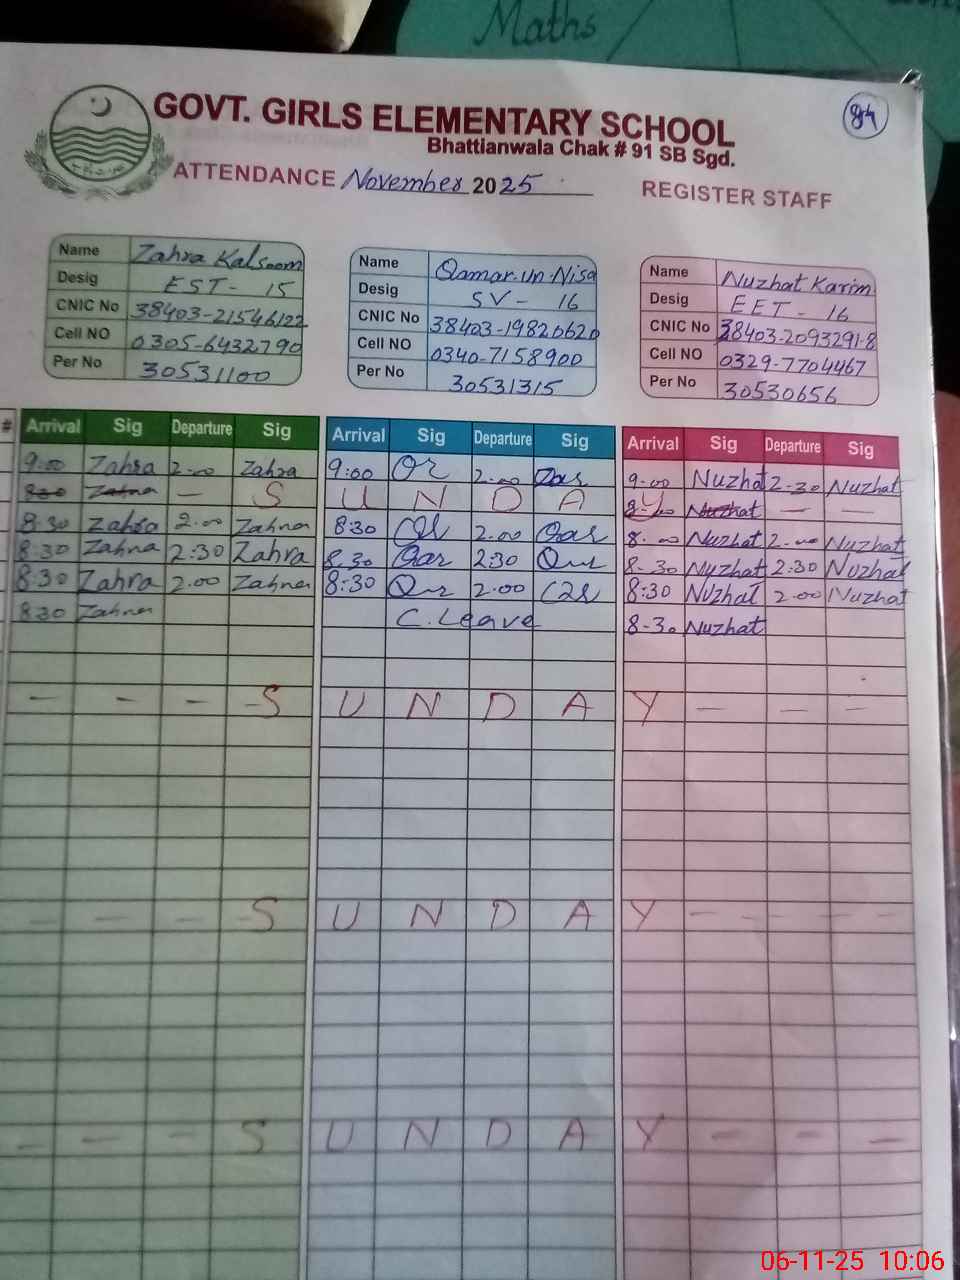 Maths
GOVT. GIRLS ELEMENTARY SCHOOL
84
Bhattianwala Chak # 91 SB Sgd.
ATTENDANCE November 2025 REGISTER STAFF
Name Zahra Kalsoom
Desig EST - 15
CNIC No 38403-21546122
Cell NO 0305-6432790
Per No 30531100
Name Qamar-un-Nisa
Desig SV - 16
CNIC No 38403-19820620
Cell NO 0340-7158900
Per No 30531315
Name Nuzhat Karim
Desig EET - 16
CNIC No 38403-2093291-8
Cell NO 0329-7704467
Per No 30530656
# Arrival Sig Departure Sig Arrival Sig Departure Sig Arrival Sig Departure Sig
9:00 Zahra 2-00 Zahra 9:00 2.00 9-00 Nuzhat 2-30 Nuzhat
8:30 Zahra - S U N D A Y Nuzhat - -
8:30 Zahra 2.00 Zahra 8:30 2.00 Qar 8-00 Nuzhat 2-00 Nuzhat
8:30 Zahra 2:30 Zahra 8.30 Qar 2:30 8-30 Nuzhat 2:30 Nuzhat
8:30 Zahra 2.00 Zahra 8:30 2.00 8:30 Nuzhat 2-00 Nuzhat
8:30 Zahra C. Leave 8-30 Nuzhat
- - - S U N D A Y - - -
- - - S U N D A Y - - -
- - - S U N D A Y - - -
06-11-25 10:06